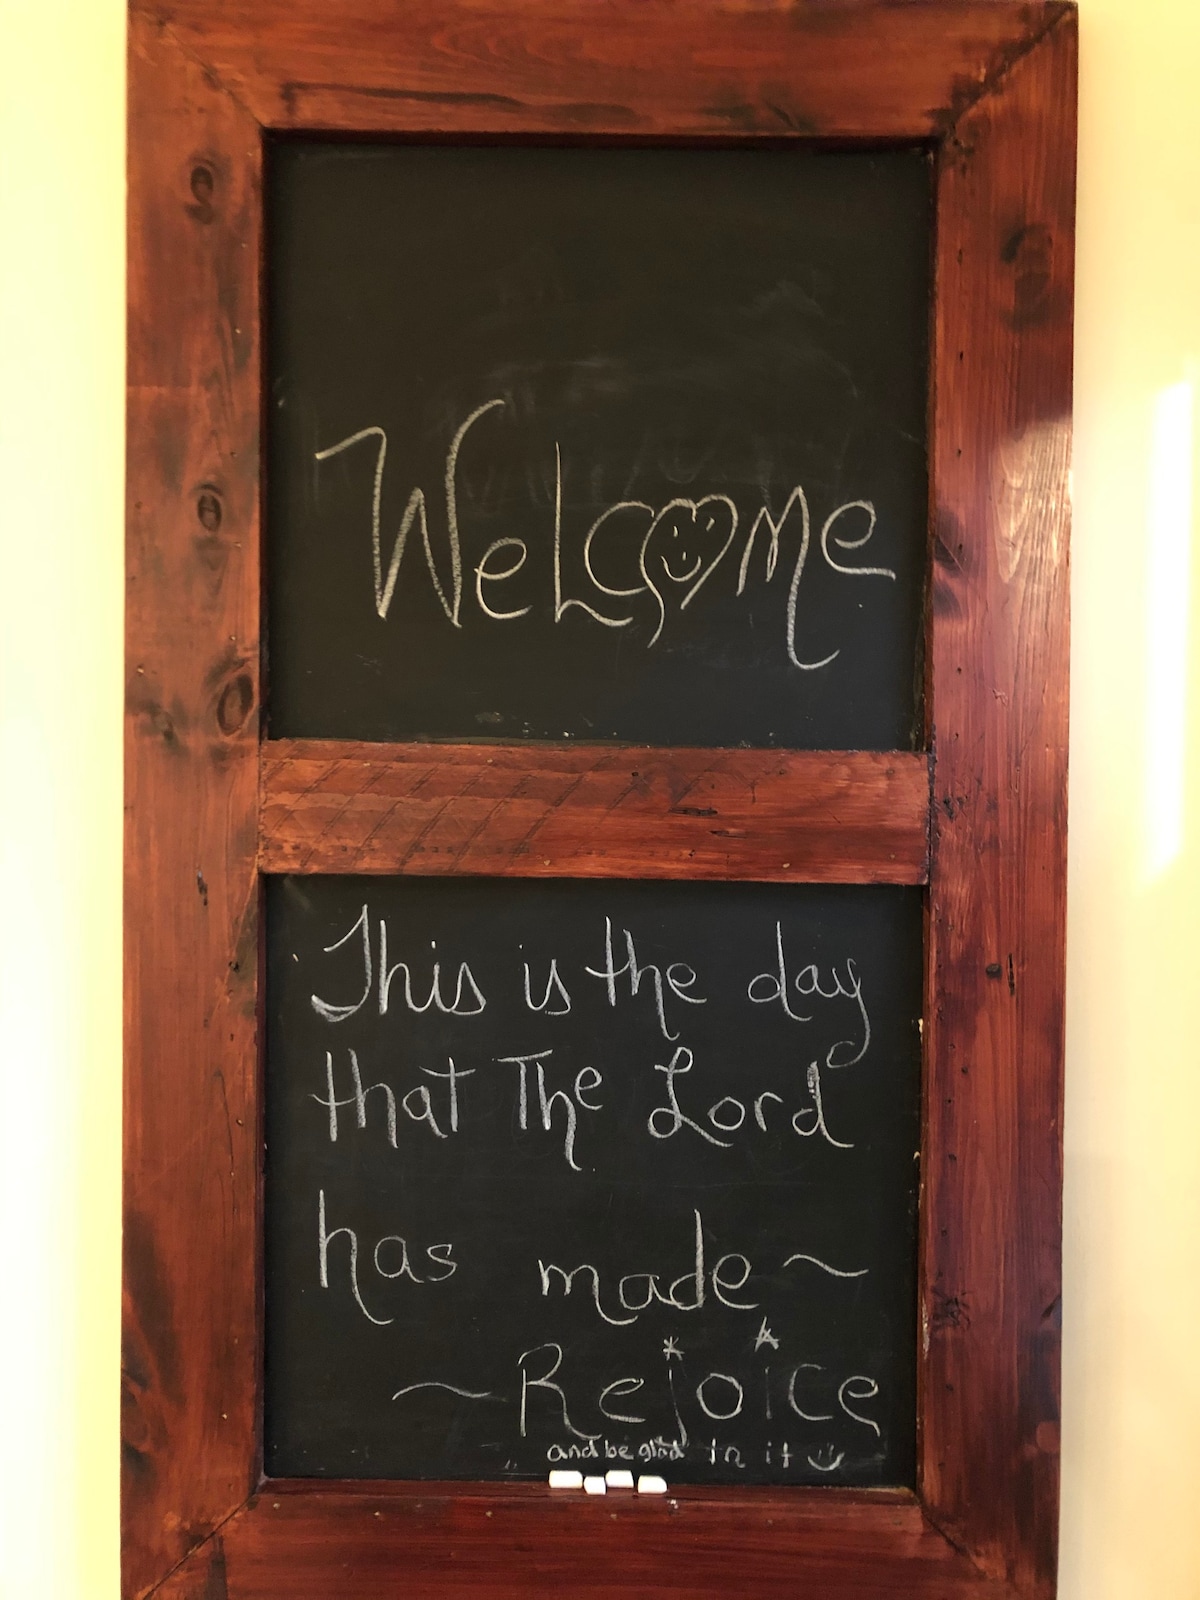 WeLcome
This is the day
that The Lord
has made ~
~ Rejoice
and be glad in it